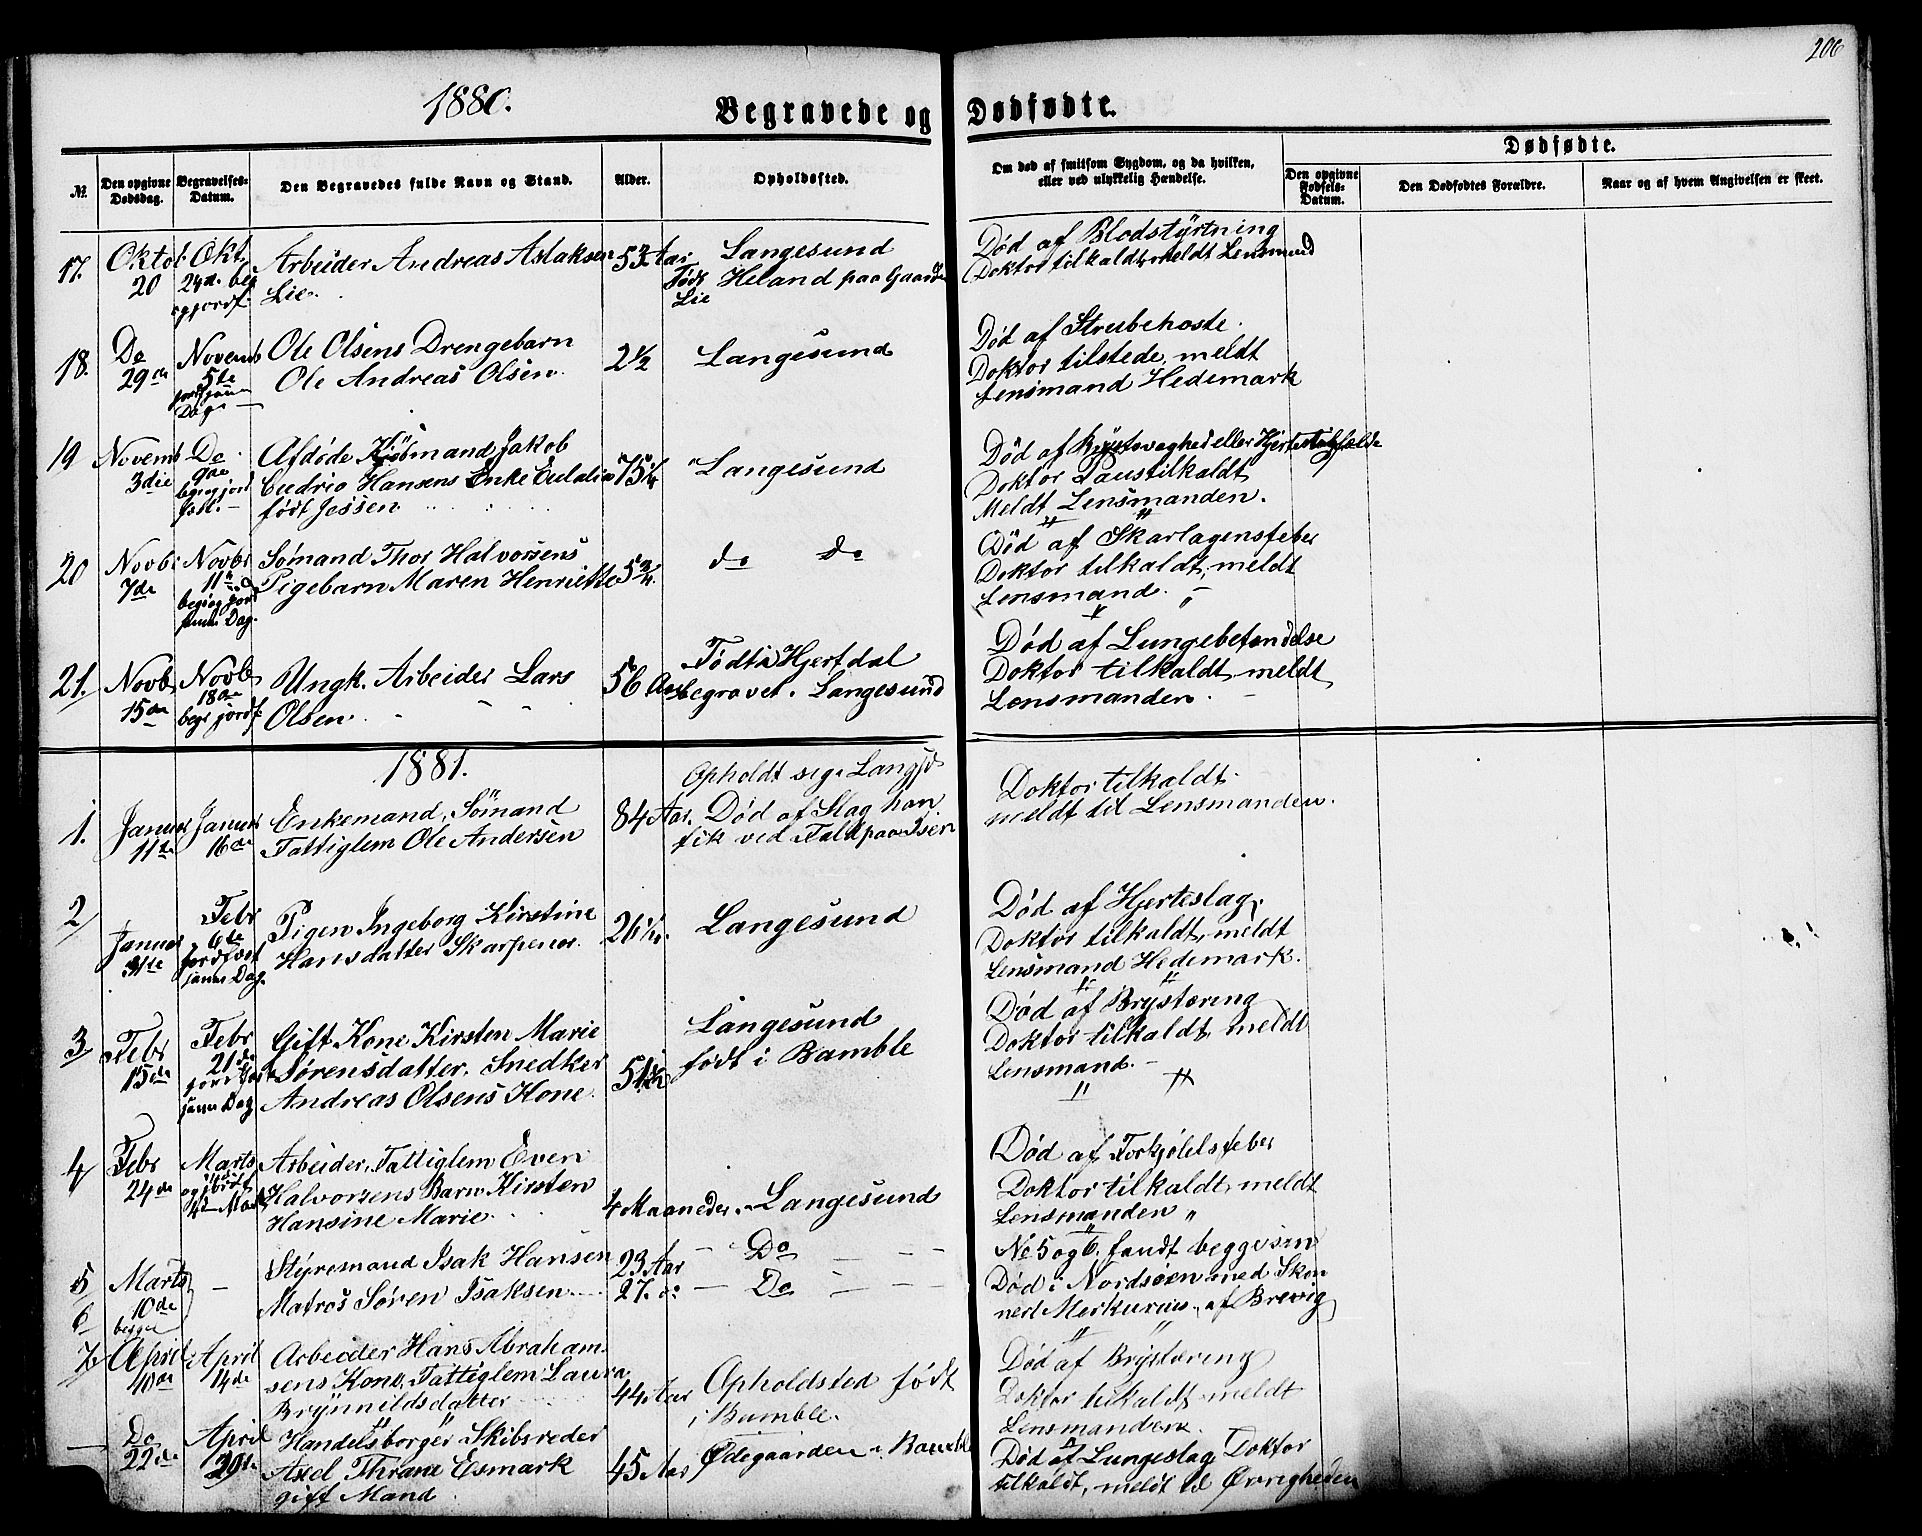 206
1880.
Begravede og Dødfødte.
№.
Den opgivne Dødsdag.
Begravelses-Datum.
Den Begravedes fulde Navn og Stand.
Alder.
Opholdssted.
Om død af smitsom Sygdom, og da hvilken,
eller ved ulykkelig Hændelse.
Dødfødte.
Den opgivne Fødsels-Datum.
Den Dødfødtes Forældre.
Naar og af hvem Angivelsen er skeet.
17. Oktob Okt. Arbeider Andreas Aslaksen 53 Aar Langesund Død af Blodstyrtning
20 24de Lie. Født Heland paa Gaarden Doktor tilkaldt, meldt Lensmand
Lie
18. Do Novemb Ole Olsens Drengebarn 2½ Langesund Død af Strubehoste.
29de 5te Ole Andreas Olsen. Doktor tilstede, meldt
samme Dag Lensmand Hedemark
19 Novemb Do Afdøde Kjøbmand Jakob 75¼ Langesund Død af eller Hjerte
3die 9de Hansens Enke Eulalia Doktor Paus tilkaldt
født Jessen Meldt Lensmanden.
20 Novbr Novbr Sømand Thor Halvorsens 5¾ do do Død af Skarlagensfeber
7de 11te Pigebarn Maren Henriette Doktor tilkaldt, meldt
samme Dag. Lensmand.
21. Novb Novb Ungk. Arbeider Lars 56 Aar Født i Hjertdal Død af Lungebetændelse
15de 18de Olsen begravet i Langesund Doktor tilkaldt, meldt
begr jordf. Lensmanden.
1881.
1. Januar Januar Enkemand, Sømand 84 Aar. Opholdt sig i Langsd Doktor tilkaldt
11te 16de Fattiglem Ole Andersen Død af Slag han meldt til Lensmanden.
fik ved Fald paa Isen
2 Januar Febr Pigen Ingeborg Kirstine 26 Langesund Død af Hjerteslag,
31te 6te Hansdatter Skarpenor. Doktor tilkaldt, meldt
samme Dag. Lensmand Hedemark.
3 Febr Febr Gift Kone Kirsten Marie 51½ Langesund Død af Brystæring
15de 21de Sørensdatter. Snedker født i Bamble Doktor tilkaldt, meldt
samme Dag Andreas Olsens Kone. Lensmand.
4 Febr Marts Arbeider, Fattiglem Even Død af Forkjølelsfeber
24de Halvorsens Barn Kirsten 4 Maaneder Langesund Doktor tilkaldt, meldt
Hansine Marie. Lensmanden
5 Marts Styremand Isak Hansen 23 Aar Do No 5 og 6. fandt begge sin
6 10de Matros Søren Isaksen 27. do Do Død i Nordsøen med Skon
begge nert Merkurius, af Brevig,
7 April April Arbeider Hans Abraham- 44 Aar Opholdsted født Død af Brystæring
10de 14de sens Kone, Fattiglem Laura i Bamble. Doktor tilkaldt, meldt
Brynnildsdatter Lensmanden.
Do April Handelsborger Skibsreder 45 Aar Ødegaarden i Bamble Død af Lungeslag Doktor
22de 29de Axel Thrane Esmark tilkaldt, meldt til Øvrigheden
gift Mand